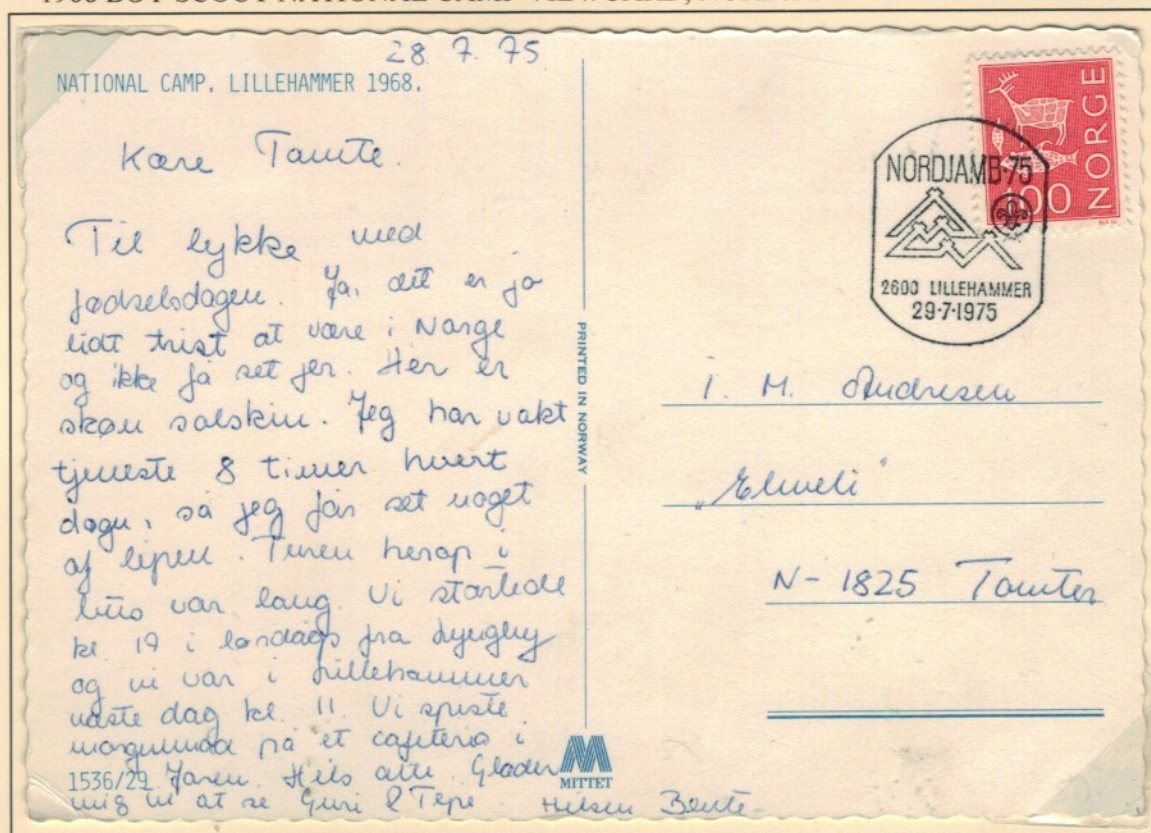 28. 7. 75
NATIONAL CAMP. LILLEHAMMER 1968.
Kære Tante.
Til lykke med
fødselsdagen. Ja, det er jo
lidt trist at være i Norge
og ikke få set jer. Her er
skøn solskin. Jeg har vakt
tjeneste 8 timer hvert
døgn, så jeg får set noget
af lejren. Turen herop i
bus var lang. Vi startede
kl. 17 i lørdags fra Lyngby
og vi var i Lillehammer
næste dag kl. 11. Vi spiste
morgenmad på et cafeteria i
1536/29 Hils alle. Glæder
mig til at se Guri &
Hilsen Bente
PRINTED IN NORWAY
MITTET
NORGE
100
NORDJAMB-75
2600 LILLEHAMMER
29-7-1975
I. M. Andresen
"Elveli"
N-1825 Tomter